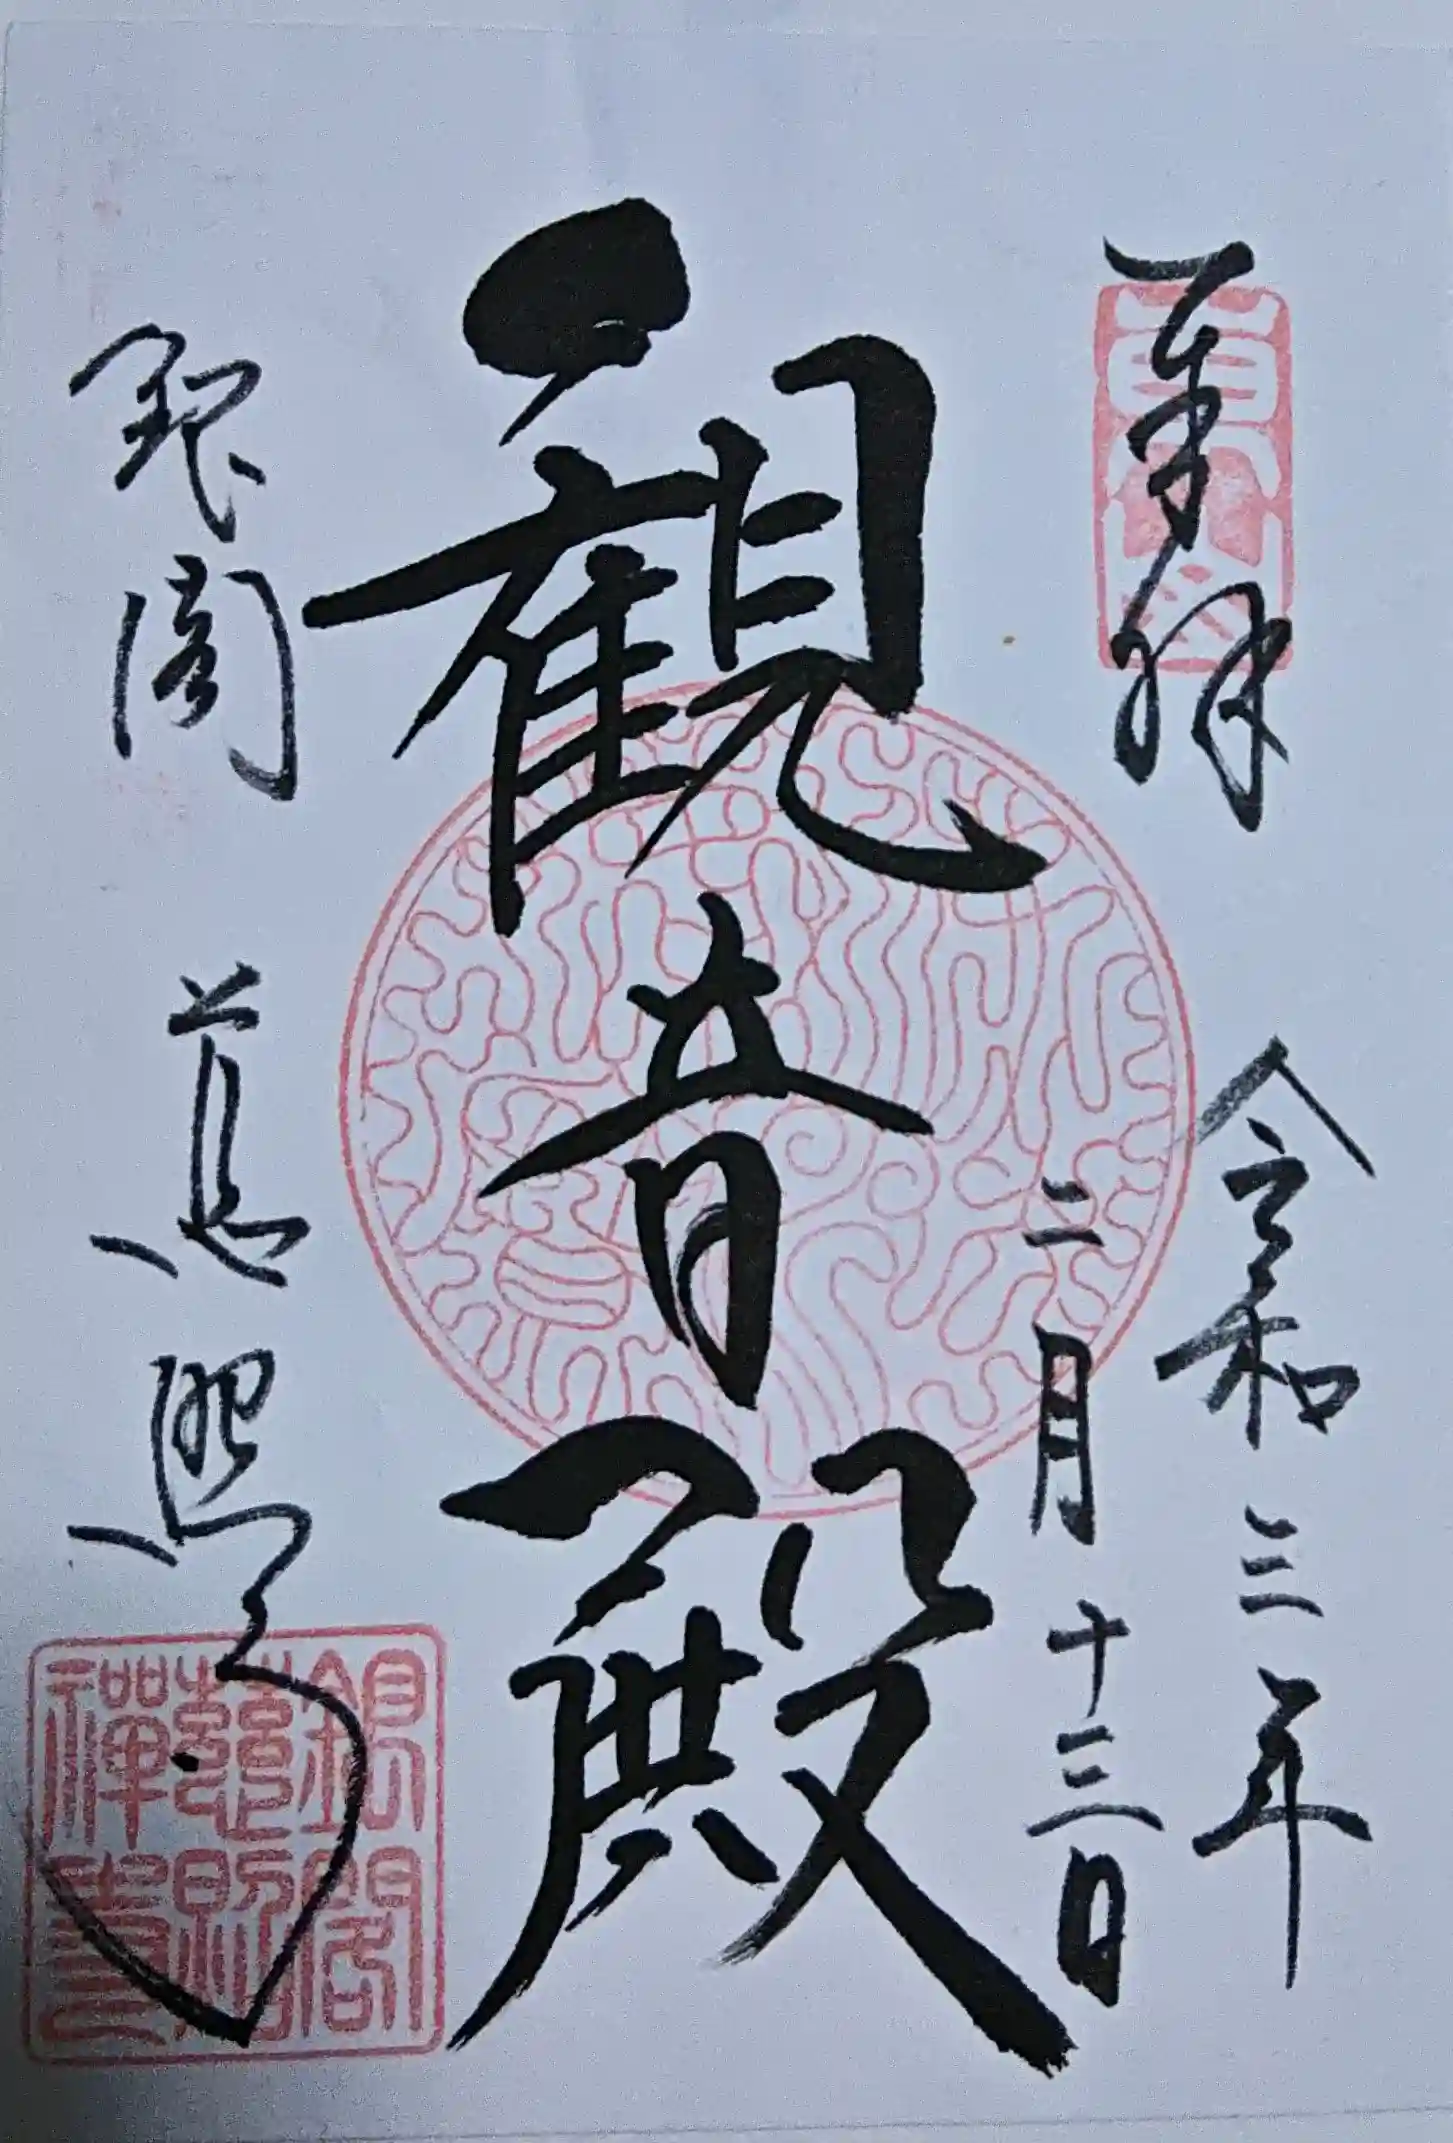 奉拝
令和三年
二月十三日
觀音殿
銀閣 慈照寺
銀閣
慈照
禪寺